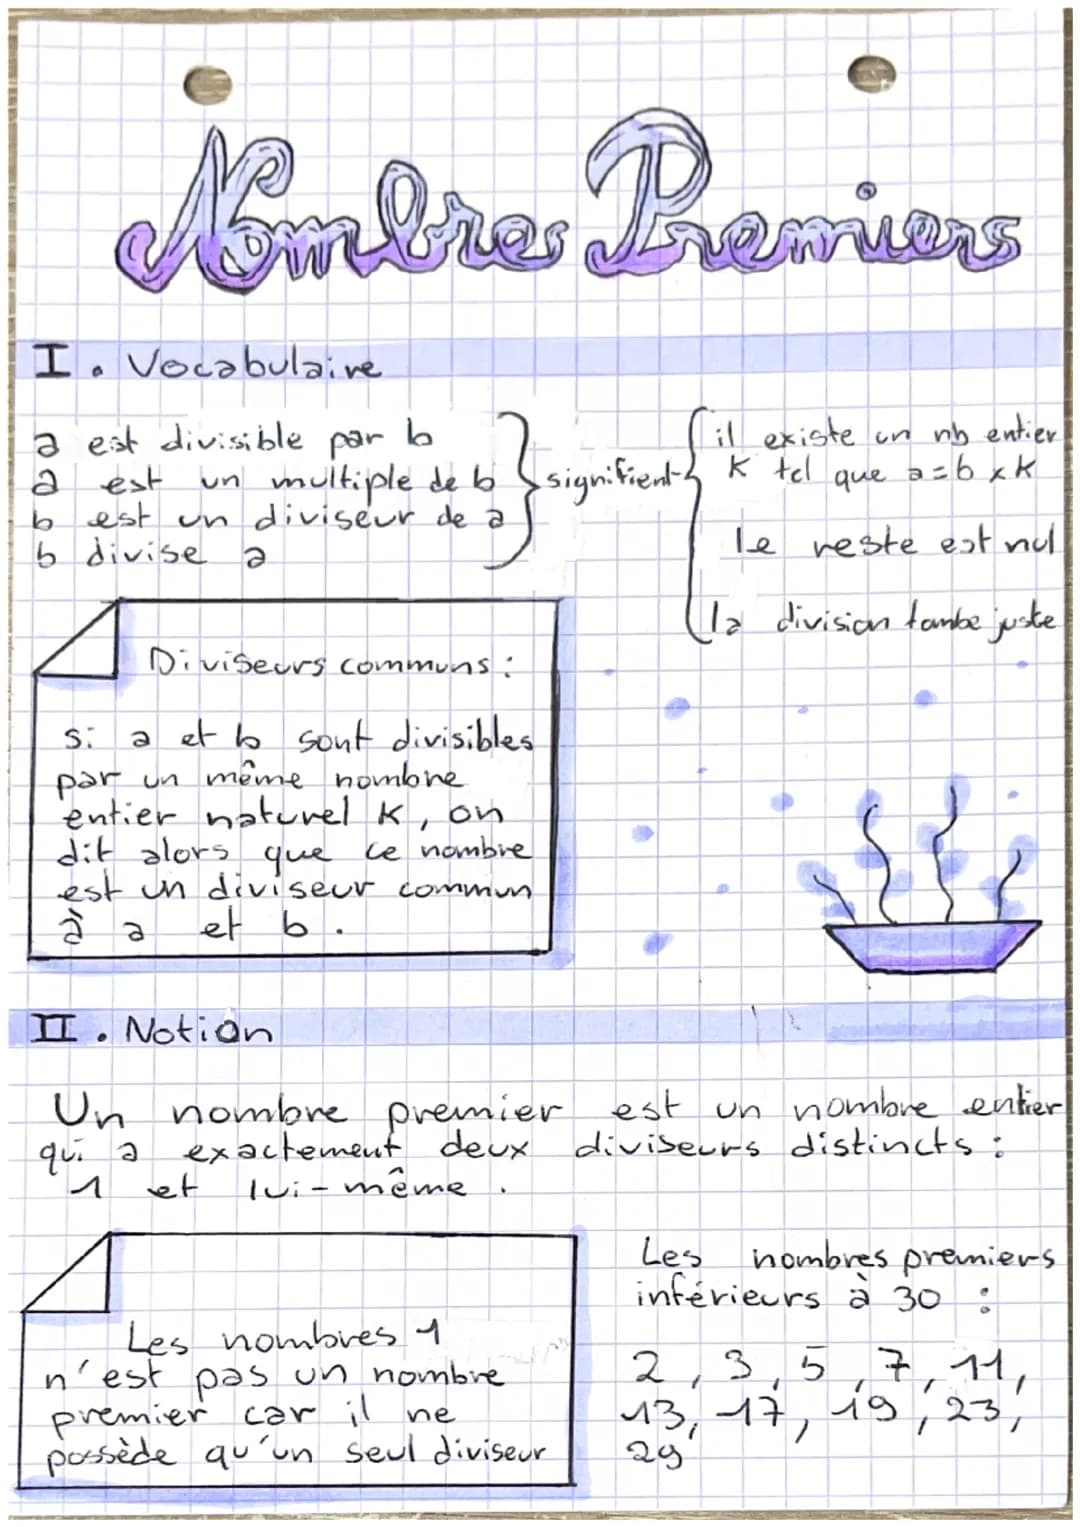 Nombres Premiers
I. Vocabulaire
a est divisible par b
a est un multiple de b
b est un diviseur de a
b divise a
signifient
il existe un nb entier
K tel que a = b x K
le reste est nul
la division tombe juste
Diviseurs communs :
si a et b sont divisibles
par un même nombre
entier naturel K, on
dit alors que ce nombre
est un diviseur commun
à a et b.
II. Notion
Un nombre premier est un nombre entier
qui a exactement deux diviseurs distincts :
1 et lui-même.
Les nombres 1
n'est pas un nombre
premier car il ne
possède qu'un seul diviseur
Les nombres premiers
inférieurs à 30 :
2, 3, 5, 7, 11,
13, 17, 19, 23,
29